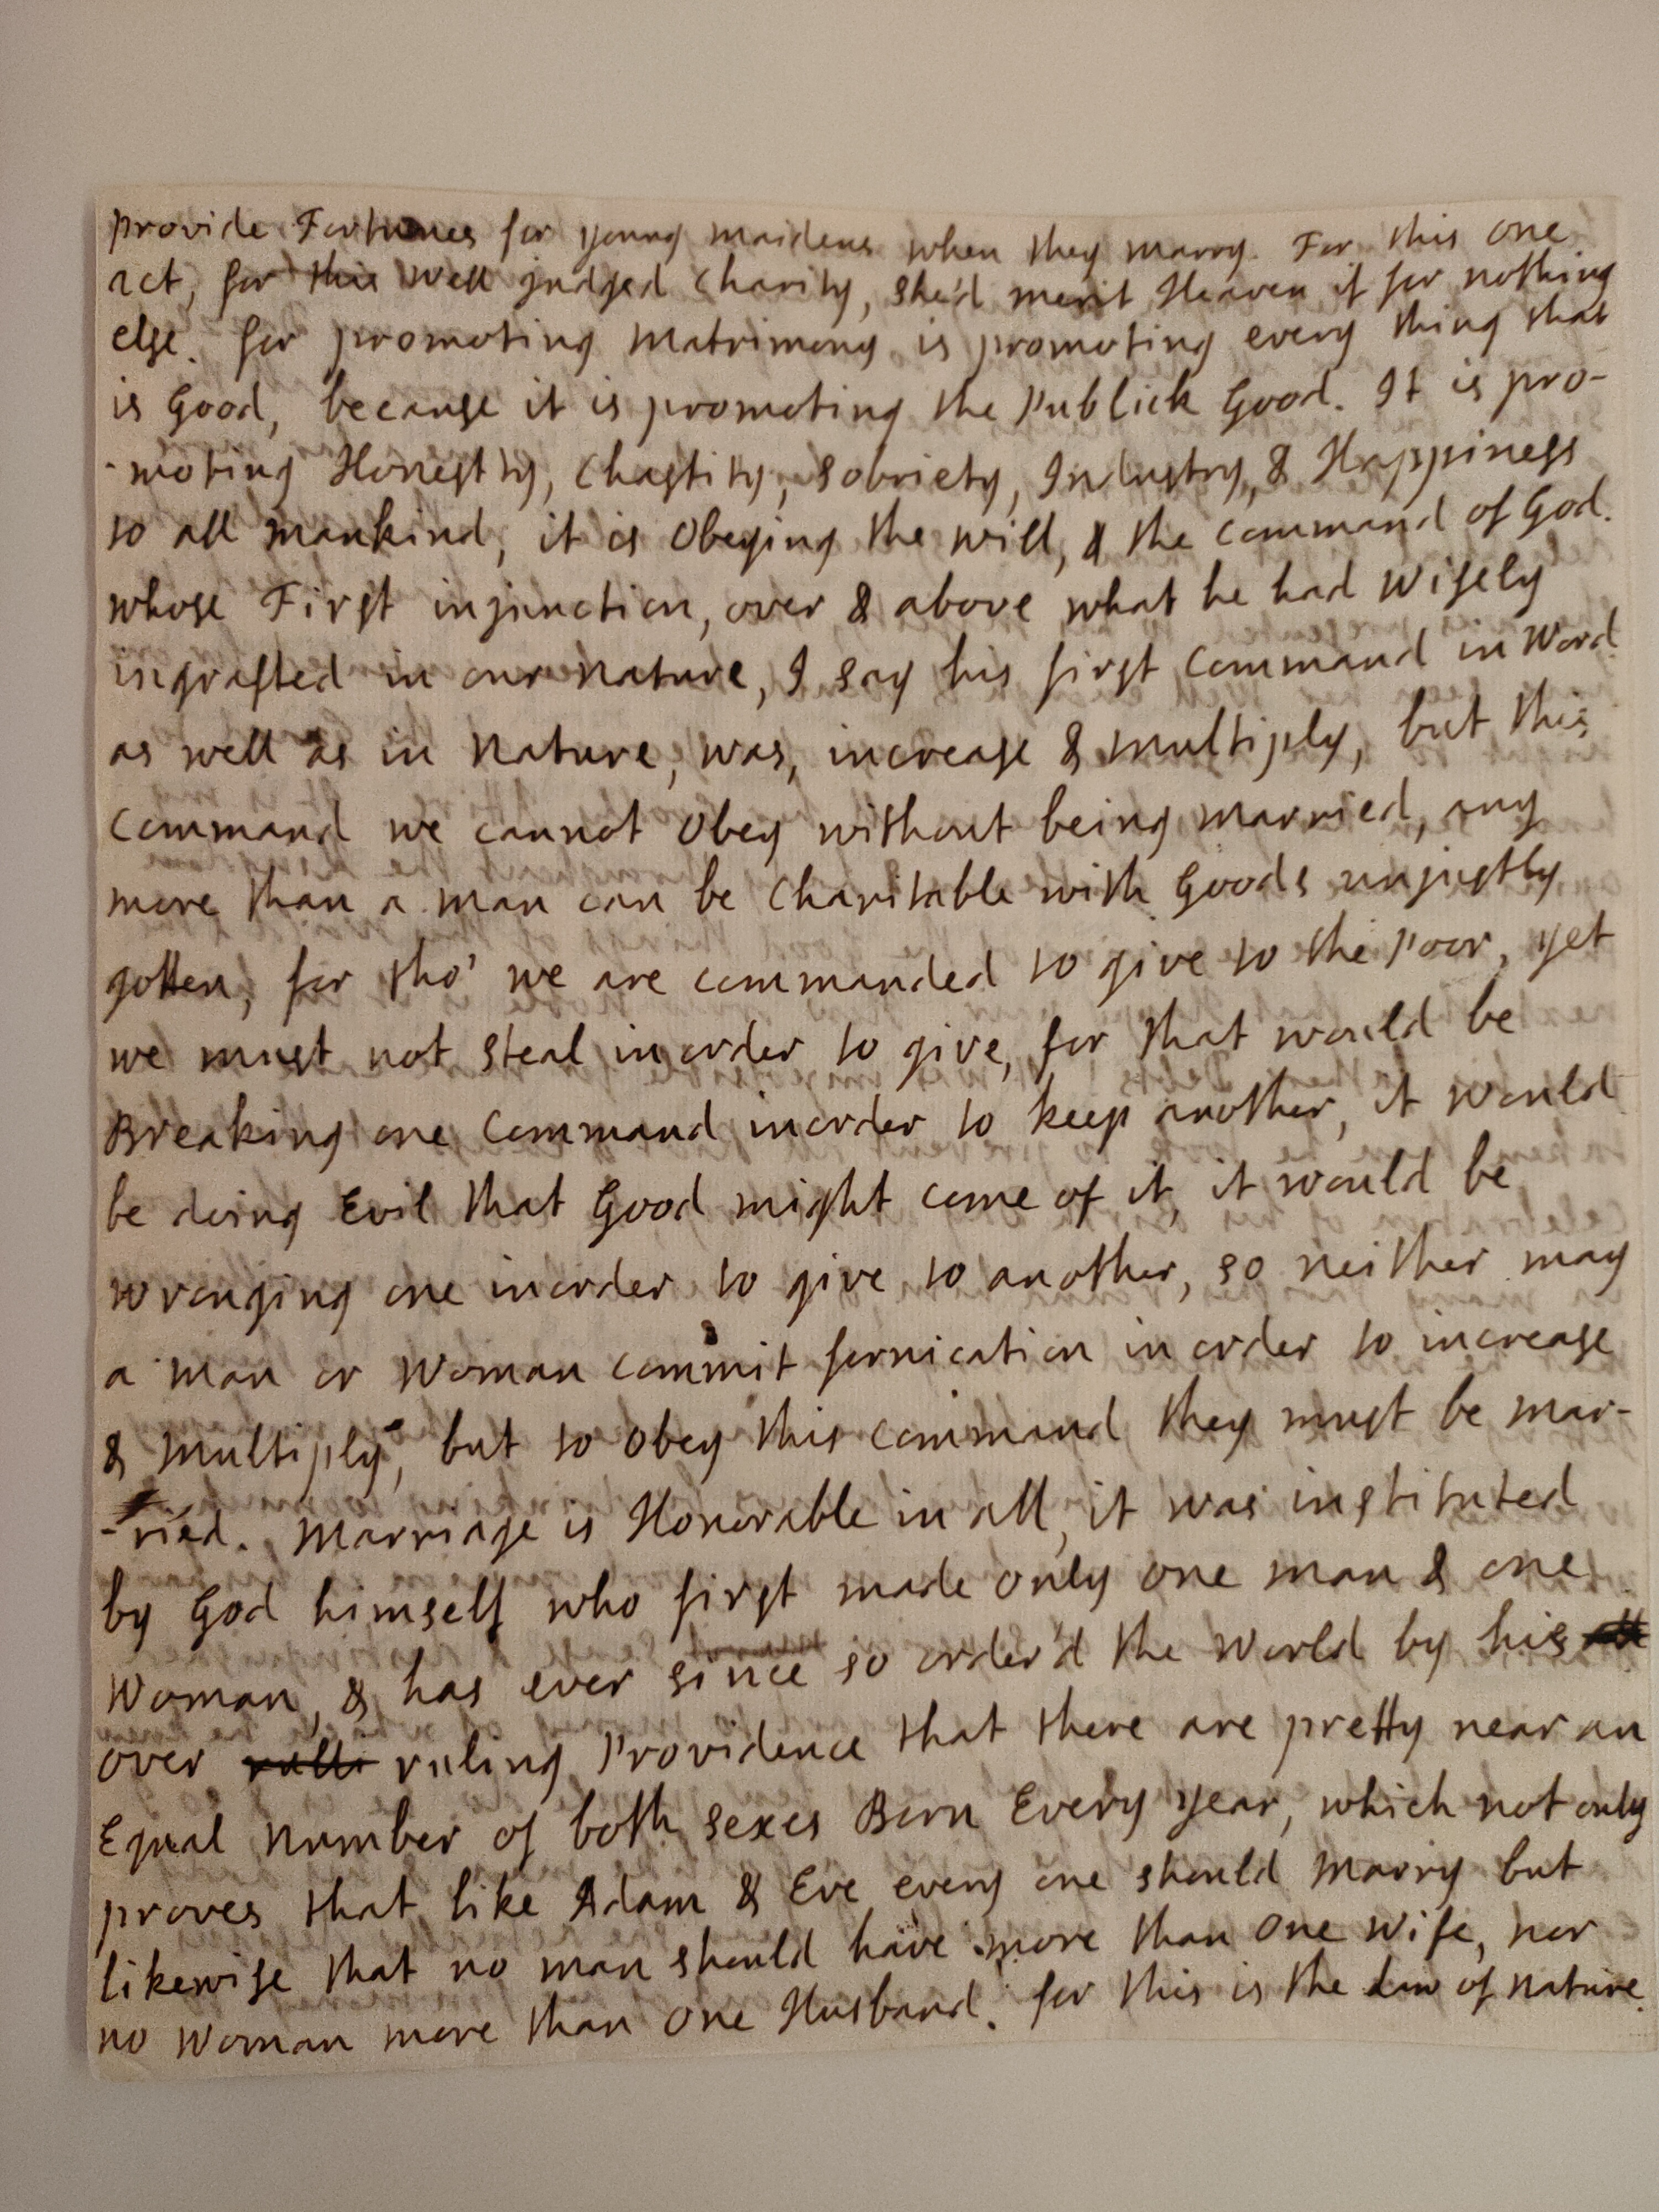 provide Fortunes for young maidens when they marry. For this one
act, for this well judged Charity, she'd merit Heaven if for nothing
else. for promoting Matrimony is promoting every thing that
is Good, because it is promoting the Publick Good. It is pro-
-moting Honesty, Chastity, Sobriety, Industry, & Happiness
to all Mankind, it is Obeying the will, & the Command of God.
whose First injunction, over & above what he had Wisely
ingrafted in our Nature, I say his first Command in Word
as well as in Nature, was, increase & multiply, but this
Command we cannot Obey without being Married, any
more than a man can be Charitable with Goods unjustly
gotten, for tho' we are commanded to give to the Poor, yet
we must not steal in order to give, for that would be
Breaking one Command in order to keep another, it would
be doing Evil that Good might come of it, it would be
wronging one in order to give to another, so neither may
a man or Woman commit fornication in order to increase
& Multiply, but to Obey this Command they must be mar-
-ried. Marriage is Honorable in all, it was instituted
by God himself who first made only one man & one
Woman, & has ever since so order'd the World by his
over rulli ruling Providence that there are pretty near an
Equal Number of both sexes Born Every year, which not only
proves that like Adam & Eve every one should Marry but
likewise that no man should have more than One Wife, nor
no Woman more than One Husband. for this is the Law of Nature.